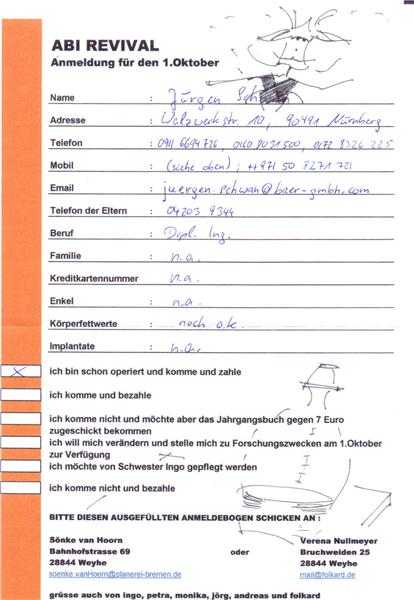 ABI REVIVAL
Anmeldung für den 1.Oktober
Name : Jürgen Schwan
Adresse : Walzwerkstr. 10, 90491 Nürnberg
Telefon : 0911 6694726, 0160 8031500, 0172 8326 225
Mobil : (siehe oben) ; ++971 50 8271 721
Email : juergen.schwan@baer-gmbh.com
Telefon der Eltern : 04203 9344
Beruf : Dipl. Ing.
Familie : n.a.
Kreditkartennummer : n.a.
Enkel : n.a.
Körperfettwerte : noch o.k.
Implantate : n.a.
X ich bin schon operiert und komme und zahle
ich komme und bezahle
ich komme nicht und möchte aber das Jahrgangsbuch gegen 7 Euro
zugeschickt bekommen
ich will mich verändern und stelle mich zu Forschungszwecken am 1.Oktober
zur Verfügung
ich möchte von Schwester Ingo gepflegt werden
ich komme nicht und bezahle
BITTE DIESEN AUSGEFÜLLTEN ANMELDEBOGEN SCHICKEN AN :
Sönke van Hoorn Verena Nullmeyer
Bahnhofstrasse 69 oder Bruchweiden 25
28844 Weyhe 28844 Weyhe
soenke.vanHoorn@planerei-bremen.de mail@folkard.de
grüsse auch von ingo, petra, monika, jörg, andreas und folkard